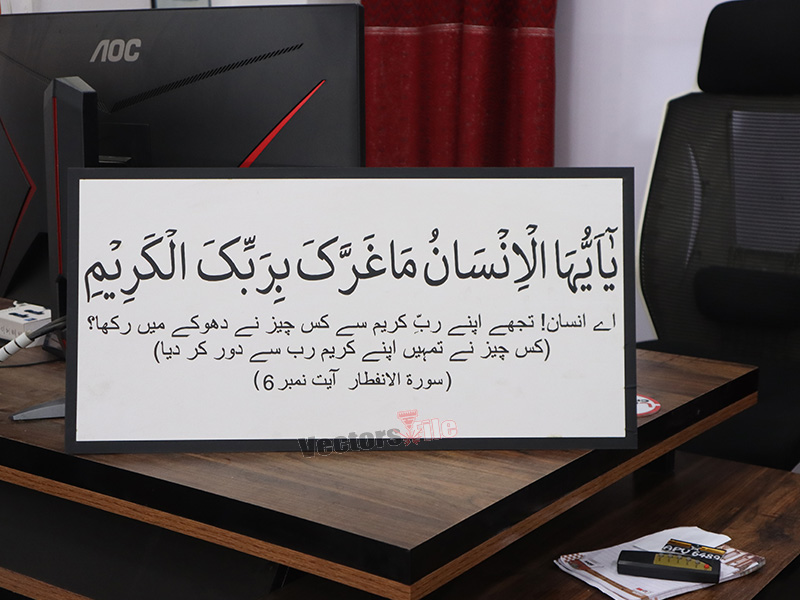 AOC
يٰۤاَيُّهَا الْاِنْسَانُ مَا غَرَّكَ بِرَبِّكَ الْكَرِيْمِ
اے انسان! تجھے اپنے ربِّ کریم سے کس چیز نے دھوکے میں رکھا؟
(کس چیز نے تمہیں اپنے کریم رب سے دور کر دیا)
(سورۃ الانفطار آیت نمبر 6)
VectorsFile